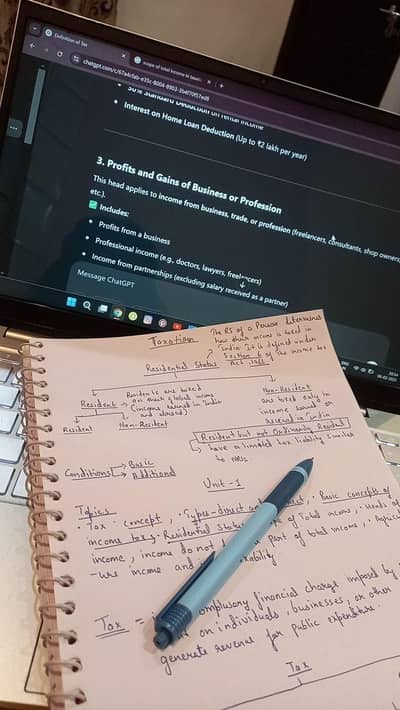 Definition of Tax
scope of total income in taxati
chatgpt.com/c/67a4cfab-
Interest on Home Loan Deduction (Up to ₹2 lakh per year)
3. Profits and Gains of Business or Profession
This head applies to income from business, trade, or profession (freelancers, consultants, shop owners,
etc.).
✅ Includes:
Profits from a business
Professional income (e.g., doctors, lawyers, freelancers)
Income from partnerships (excluding salary received as a partner)
Message ChatGPT
Taxation
The RS of a Person determines
how their income is taxed in
India. It is defined under
Section 6 of the income tax
Act, 1961
Residential Status
Resident → Residents are taxed
on their global income
(income earned in India
and abroad)
Non-Resident
are taxed only in
income earned or
received in India
Resident
Non-Resident
Resident but not Ordinarily Resident
↳ have a limited tax liability similar
to NRIs
Conditions → Basic
→ Additional
Unit - 1
Topics
Tax : concept, Types - direct Basic concepts of
income tax, Residential Status of Total income, Heads of
income, income do not part of total income,
income and
Tax = compulsory financial charge imposed by
on individuals, businesses, or other
generate revenue for public expenditure.
Tax